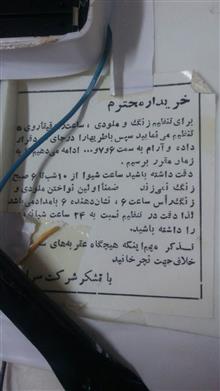 خریدار محترم
برای تنظیم زنگ و ملودی ، ساعت
تنظیم می نمایید سپس باطریها را در جای قرار
داده و آرام به سمت ۷و۶و... ادامه می دهیم تا به
زمان مقرر برسیم .
دقت داشته باشید ساعت شبها از ۱۰ شب تا ۶ صبح
زنگ نمی زند ضمناً اولین نواختن ملودی و
زنگ رأس ساعت ۶ ، نشان دهنده ۶ بامداد می باشد
لذا دقت در تنظیم نسبت به ۲۴ ساعت شبانه
را داشته باشید.
تذکر مهم اینکه هیچگاه عقربه های
خلاف جهت نچرخانید
با تشکر شرکت